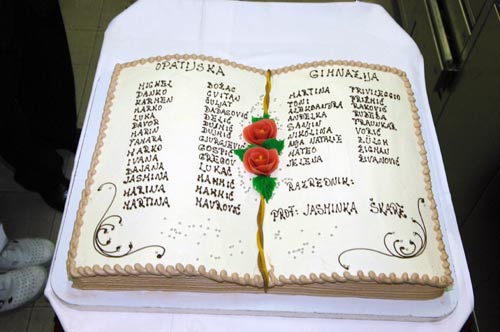 OPATIJSKA
MIGNEL DOŽAC
DANKO CVITAN
KARMEN ČULJAT
MARKO DABAGOVIĆ
LUKA DELIĆ
DAVOR DUNIĆ
MARIN DUNIĆ
TAMARA GJURIĆ
MARKO GOSPIĆ
IVANA GREGOV
DAJANA LUKAČ
JASMINA MAMIĆ
MARINA MAMIĆ
MARTINA MAVROVIĆ
GIMNAZIJA
MARTINA PRIVILEGGIO
TONI PRIŽMIĆ
ALEKSANDRA RAKOVIĆ
ANĐELKA RUBEŠA
SANJIN TRAVNKAR
NIKOLINA VORIĆ
NATALIE
MATEO ŽIGMAN
JELENA ŽIVANOVIĆ
RAZREDNIK:
PROF. JASMINKA ŠKARE